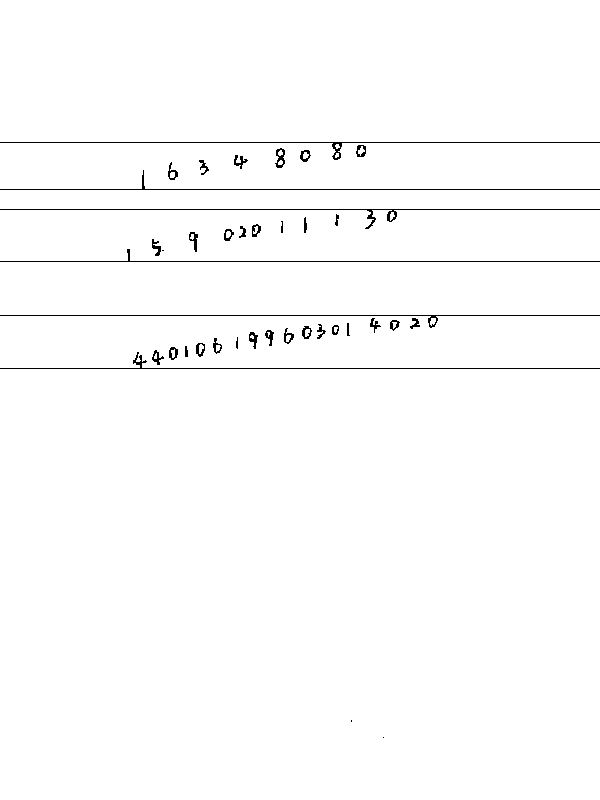 1 6 3 4 8 0 8 0
1 5 9 020 1 1 1 3 0
440106199603014020